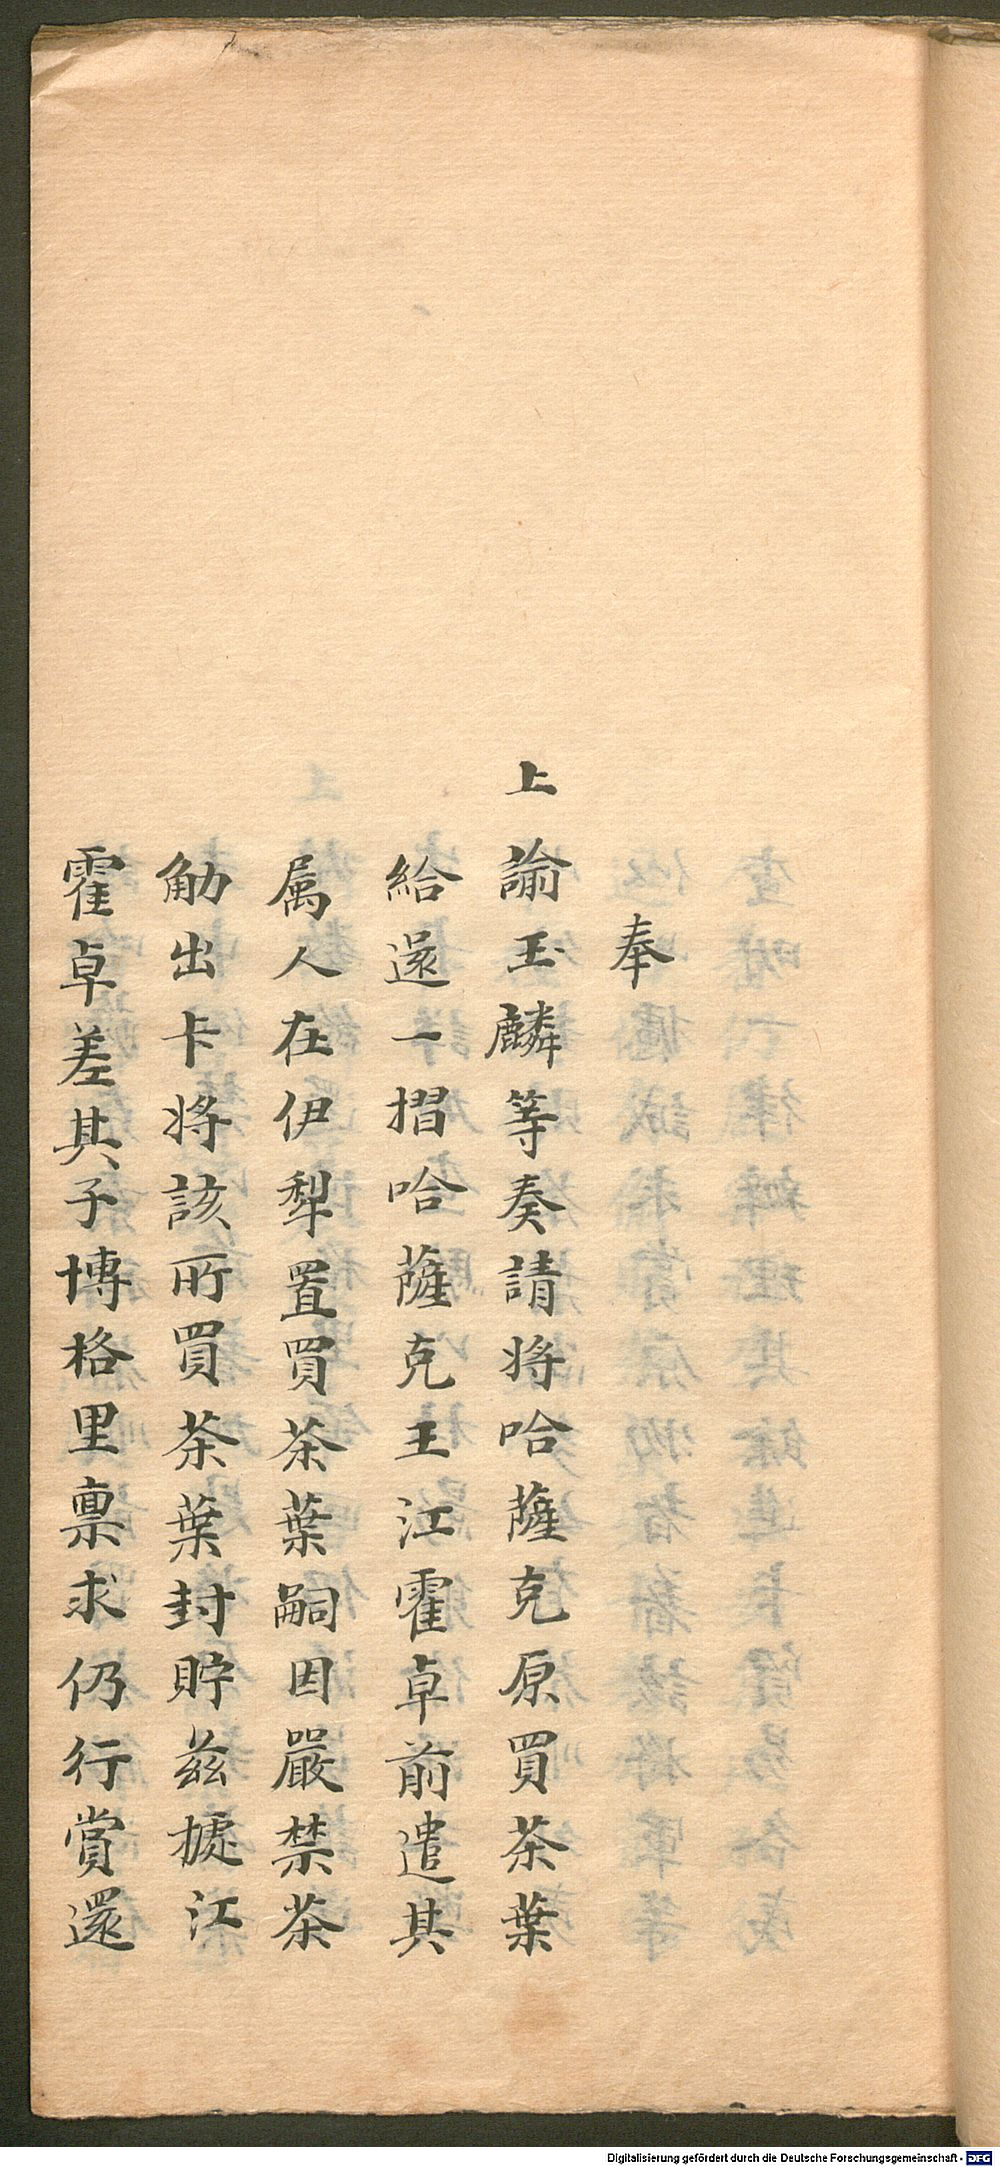 奉
上諭玉麟等奏請将哈薩克原買茶葉
給還一摺哈薩克王江霍卓前遣其
属人在伊犁置買茶葉嗣因嚴禁茶
觔出卡将該所買茶葉封貯兹㨿江
霍卓差其子博格里禀求仍行賞還
Digitalisierung gefördert durch die Deutsche Forschungsgemeinschaft - DFG